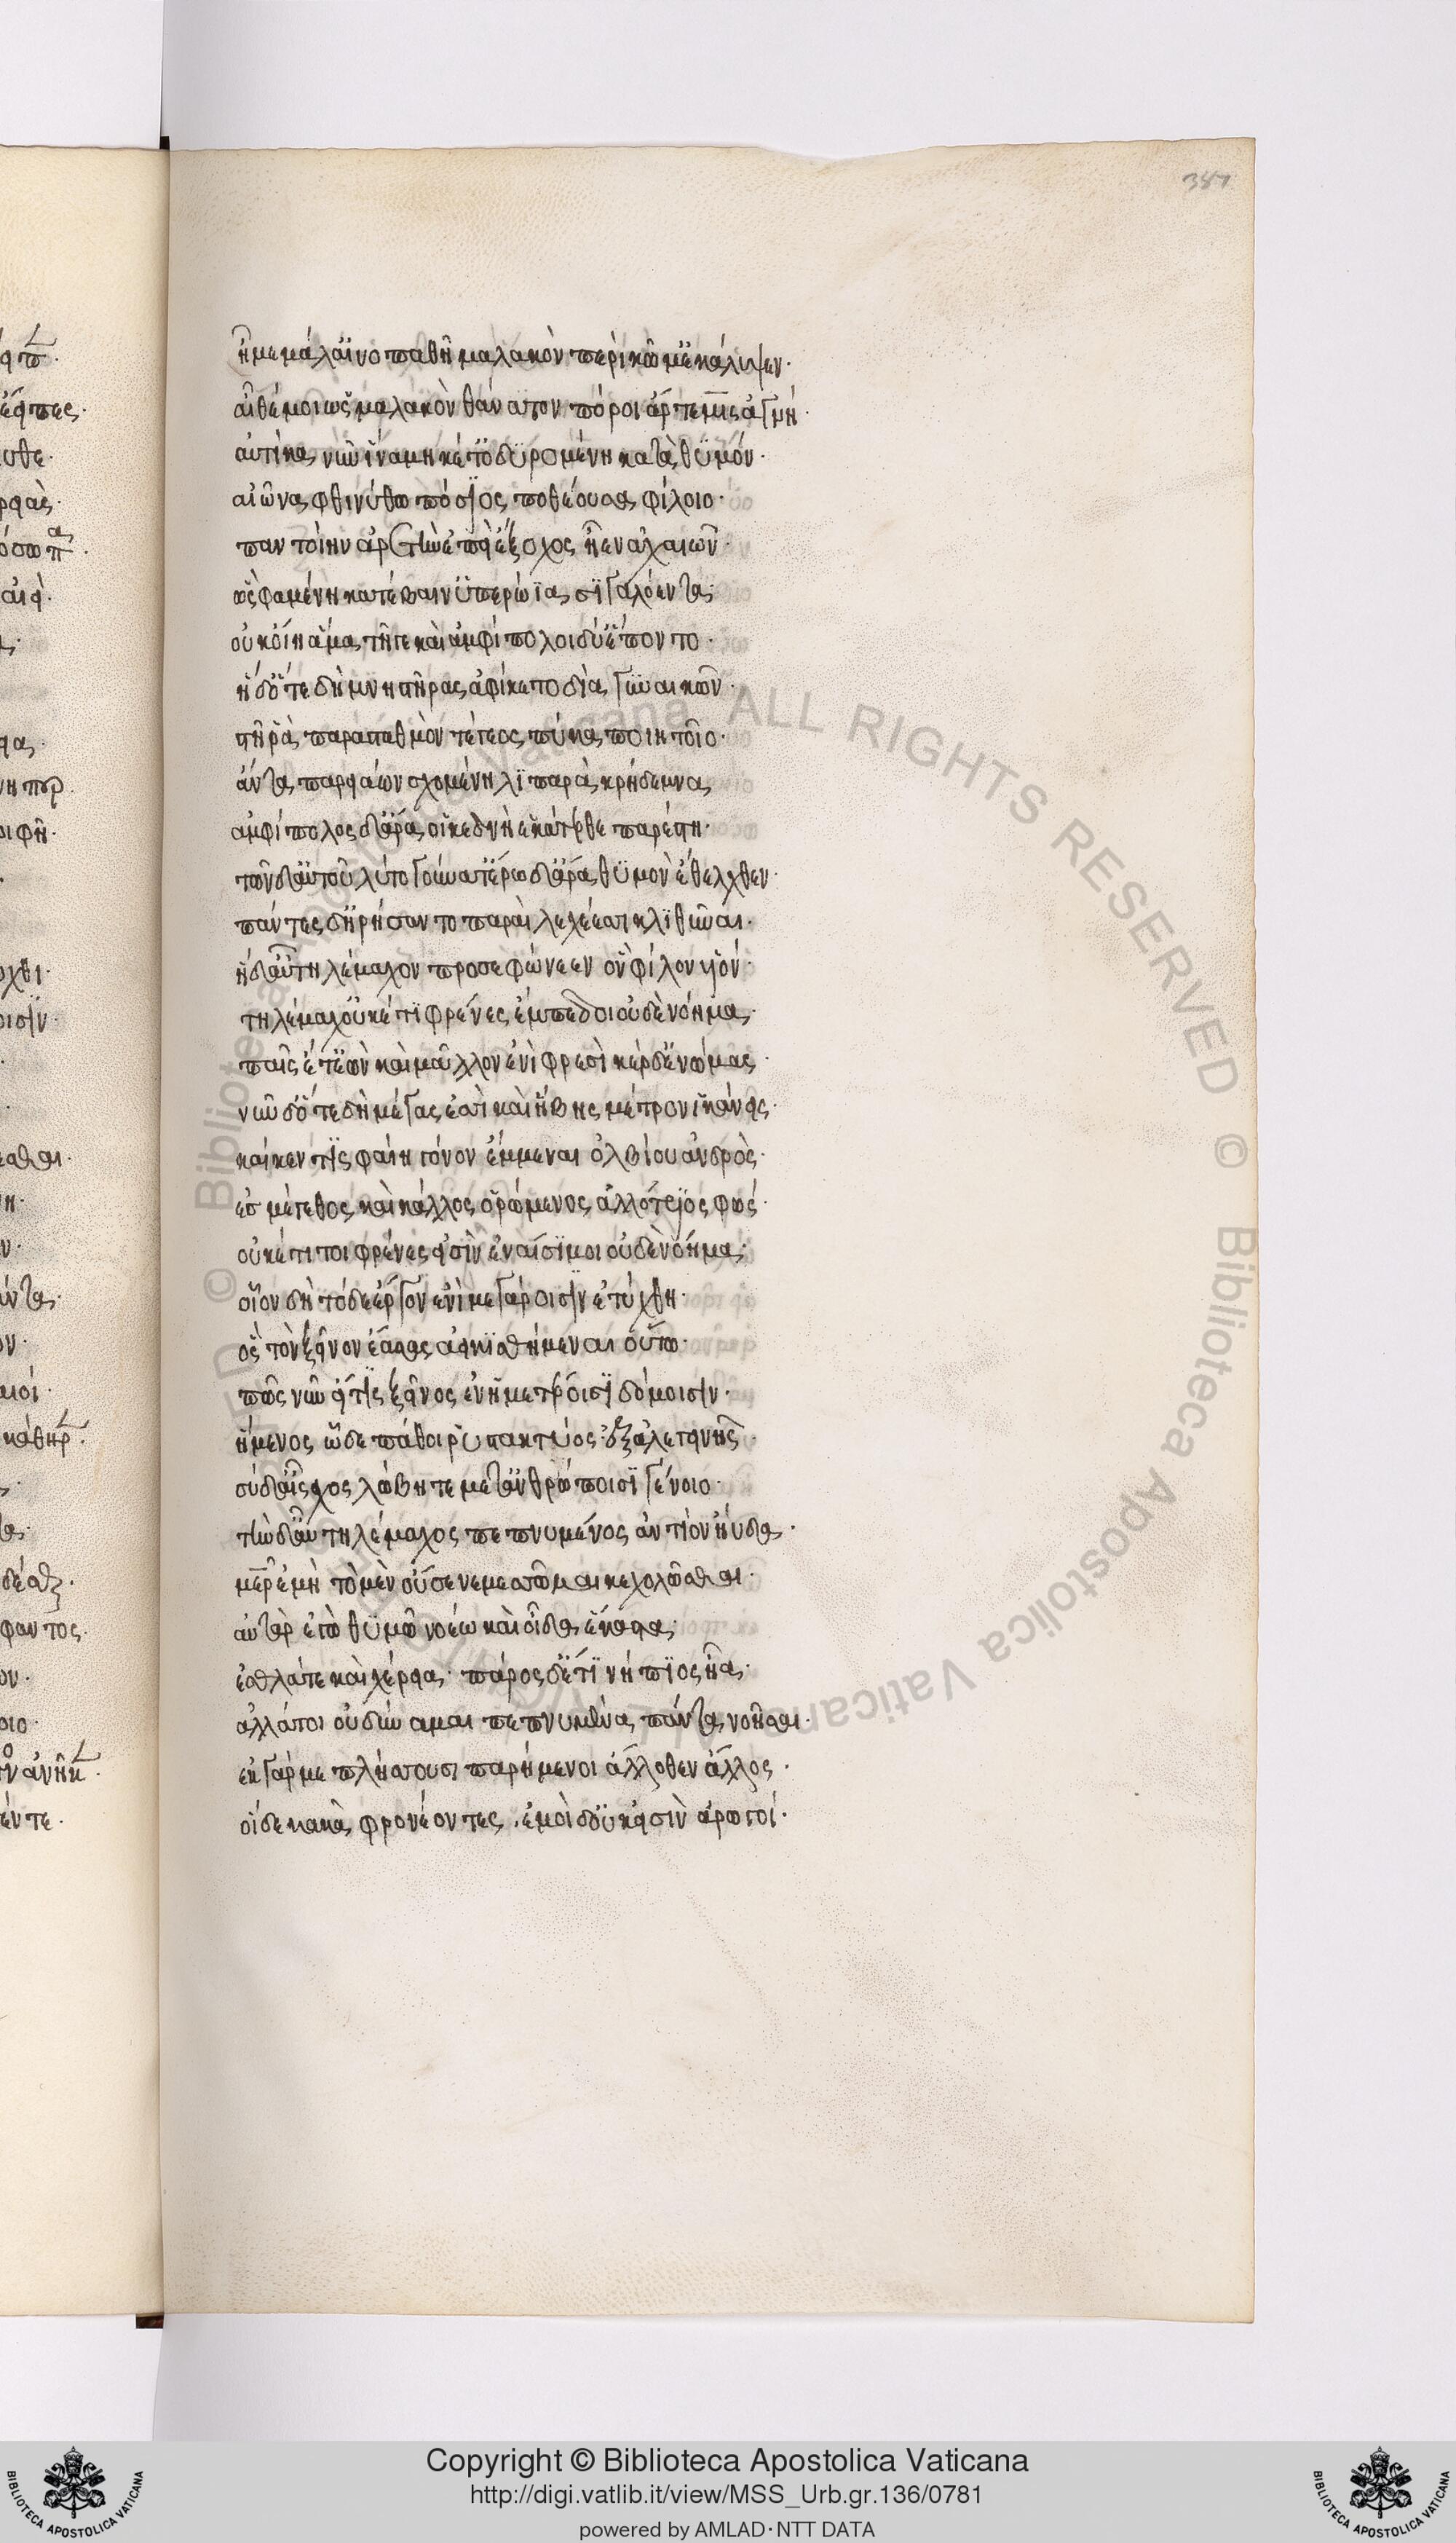 387
ἦ με μάλ' αἰνοπαθῆ μαλακὸν περὶ κῶμ' ἐκάλυψεν·
αἴθέ μοι ὡς μαλακὸν θάνατον πόροι ἄρτεμις ἁγνή·
αὐτίκα νῦν ἵνα μηκέτ' ὀδυρομένη κατὰ θυμόν·
αἰῶνα φθινύθω πόσιος ποθέουσα φίλοιο·
παντοίην ἀρετὴν ἐπεὶ ἔξοχος ἦεν ἀχαιῶν·
ὣς φαμένη κατέβαιν' ὑπερώϊα σιγαλόεντα·
οὐκ οἴη ἅμα τῆγε καὶ ἀμφίπολοι δύ' ἕποντο·
ἡ δ' ὅτε δὴ μνηστῆρας ἀφίκετο δῖα γυναικῶν·
στῆ ῥὰ παρὰ σταθμὸν τέγεος πύκα ποιητοῖο·
ἄντα παρειάων σχομένη λιπαρὰ κρήδεμνα
ἀμφίπολος δ' ἄρα οἱ κεδνὴ ἑκάτερθε παρέστη·
τῶν δ' αὐτοῦ λύτο γούνατ' ἔρω δ' ἄρα θυμὸν ἔθελχθεν·
πάντες δ' ἠρήσαντο παραὶ λεχέεσσι κλιθῆναι·
ἡ δ' αὖ τηλέμαχον προσεφώνεεν ὃν φίλον υἱόν·
τηλέμαχ' οὐκέτι φρένες ἔμπεδοι οὐδὲ νόημα·
παῖς ἔτ' ἐὼν καὶ μᾶλλον ἐνὶ φρεσὶ κέρδε' ἐνώμας·
νῦν δ' ὅτε δὴ μέγας ἐσσὶ καὶ ἥβης μέτρον ἱκάνεις·
καί κέν τις φαίη γόνον ἔμμεναι ὀλβίου ἀνδρὸς·
ἐς μέγεθος καὶ κάλλος ὁρώμενος ἀλλότριος φώς·
οὐκέτι τοι φρένες εἰσὶν ἐναίσιμοι οὐδὲ νόημα·
οἷον δὴ τόδε ἔργον ἐνὶ μεγάροισιν ἐτύχθη·
ὃς τὸν ξεῖνον ἔασας ἀεικισθήμεναι οὕτω·
πῶς νῦν εἴ τις ξεῖνος ἐν ἡμετέροισι δόμοισιν·
ἥμενος ὧδε πάθοι ῥυστακτύος ἐξ ἀλεγεινῆς·
σύ δ' αἶσχος λώβη τε μετ' ἀνθρώποισι γένοιο·
τὴν δ' αὖ τηλέμαχος πεπνυμένος ἀντίον ηὔδα·
μῆτερ ἐμὴ τὸ μὲν οὔ σε νεμεσσῶμαι κεχολῶσθαι·
αὐτὰρ ἐγὼ θυμῶ νοέω καὶ οἶδα ἕκαστα·
ἐσθλά τε καὶ χέρεια· πάρος δ' ἔτι νήπιος ἦα·
ἀλλά τοι οὐ δύναμαι πεπνυμένα πάντα νοῆσαι·
ἐκ γάρ με πλήσσουσι παρήμενοι ἄλλοθεν ἄλλος·
οἵδε κακὰ φρονέοντες· ἐμοὶ δ' οὐκ εἰσὶν ἀρωγοί·
Copyright © Biblioteca Apostolica Vaticana
http://digi.vatlib.it/view/MSS_Urb.gr.136/0781
powered by AMLAD·NTT DATA